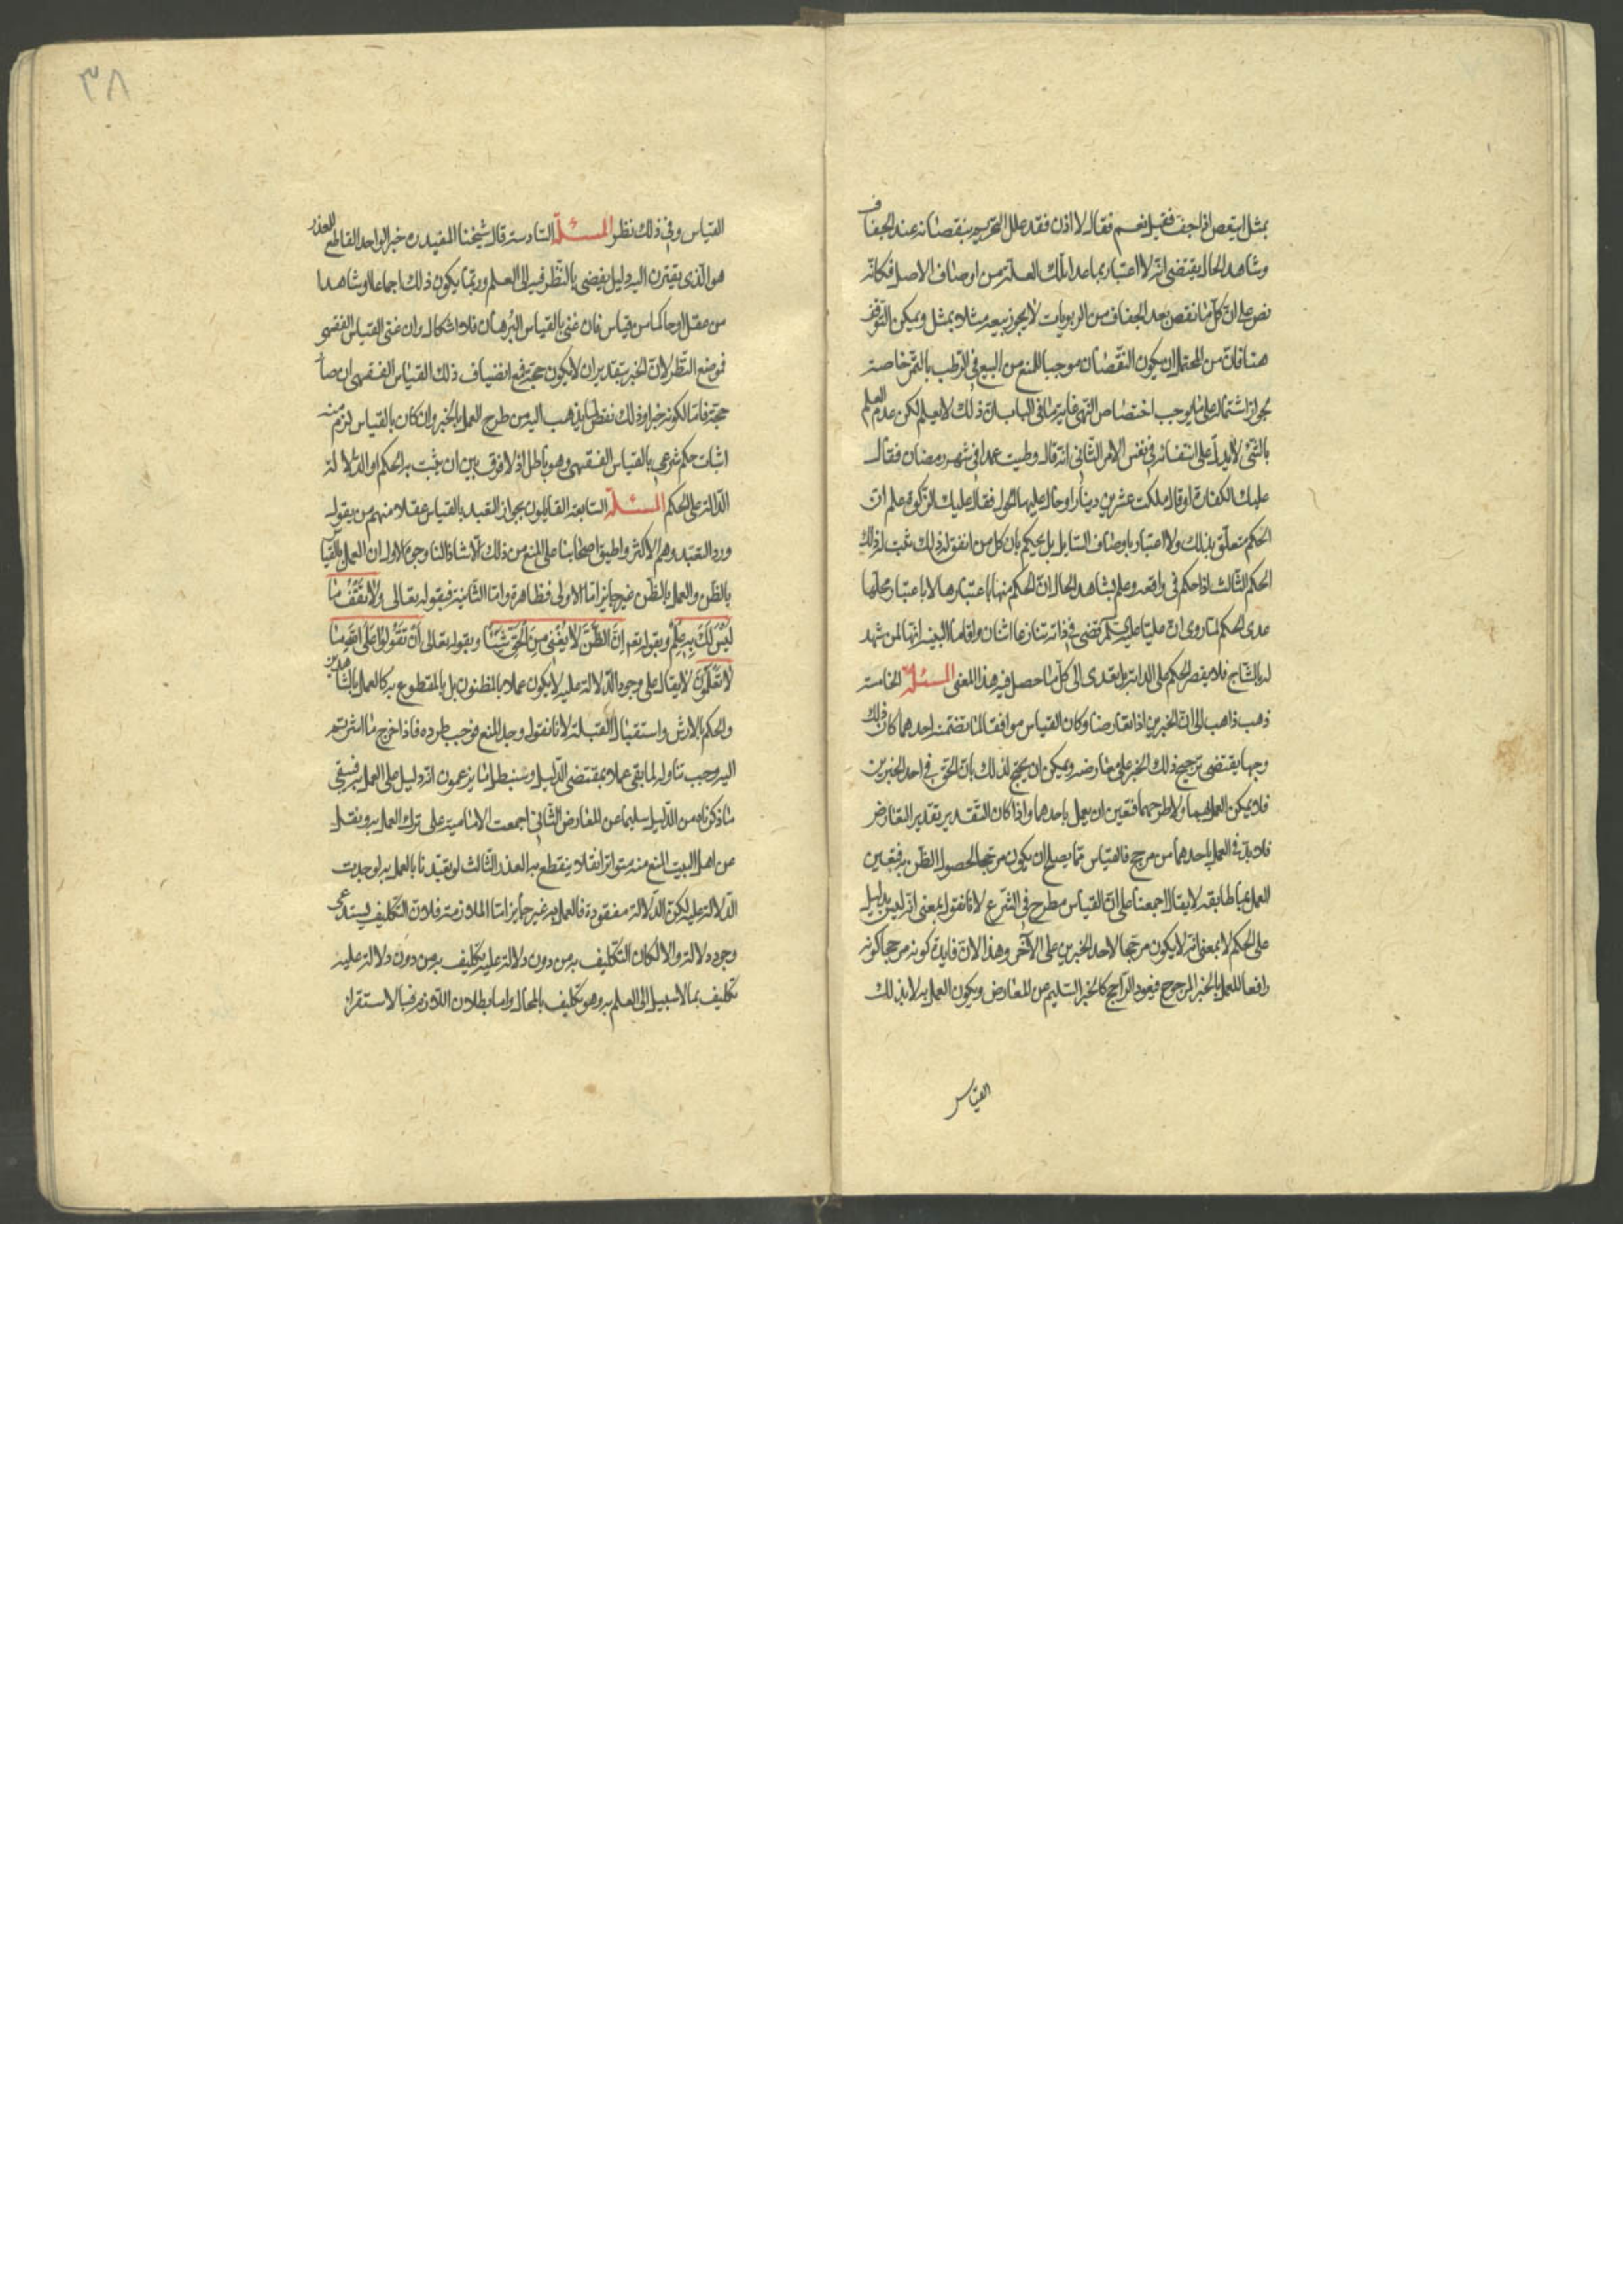 بمثل اينقص اذا جف فقيل نعم فقال لا اذن فقد علل التحريم بنقصانه عند الجفاف
وشاهد الحال يقتضى انه لا اعتبار بما عدا تلك العلة من اوصاف الاصل فكانه
نص على ان كل ما نقص بعد الجفاف من الربويات لا يجوز بيعه مثلا بمثل ويمكن التوقف
هنا فان من المحتمل ان يكون النقصان موجبا للمنع من البيع فى الرطب بالتمر خاصة
بجواز اشتماله على ما يوجب اختصاص النهى غاية ما فى الباب ان ذلك لا يعلم لكن عدم العلم
بالشئ لا يدل على انتفائه فى نفس الامر الثانى انه قال وطيت عمدا فى شهر رمضان فقال
عليك الكفارة او قال ملكت عشرين دينارا وحال عليها الحول فقال عليك الزكوة علم ان
الحكم متعلق بذلك ولا اعتبار باوصاف السايل بل يحكم بان كل من اتفق له ذلك ثبت له ذلك
الحكم الثالث اذا حكم فى واقعة وعلم بشاهد الحال ان الحكم منها باعتبارها لا باعتبار محلها
عدى الحكم كما روى ان عليا عليه السلم قضى فى دابة تنازعها اثنان واقاما البينة انها لمن شهد
له بالنتاج فلا يقصر الحكم على الدابة بل يعدى الى كل ما حصل فيه هذا المعنى المسئلة الخامسة
ذهب ذاهب الى ان الخبرين اذا تعارضا وكان القياس موافقا لما تضمنه احدهما كان ذلك
وجها يقتضى ترجيح ذلك الخبر على معارضه ويمكن ان يحتج لذلك بان الحق فى احد الخبرين
فلا يمكن العمل بهما ولا طرحهما فتعين ان يعمل باحدهما واذا كان التقدير تقدير التعارض
فلا بد فى العمل باحدهما من مرجح فالقياس مما يصلح ان يكون مرجحا لحصول الظن به فتعين
العمل بما طابقه لا يقال اجمعنا على ان القياس مطرح فى الشرع لانا نقول بمعنى انه ليس بدليل
على الحكم لا بمعنى انه لا يكون مرجحا لاحد الخبرين على الآخر وهذا لان فايدة كونه مرجحا كونه
رافعا للعمل بالخبر المرجوح فيعود الراجح كالخبر السليم عن المعارض ويكون العمل به لا بذلك
القياس
٣٨
القياس وفى ذلك نظر المسئلة السادسة قال شيخنا المفيد ره خبر الواحد القاطع للعذر
هو الذى يقترن اليه دليل يفضى بالنظر فيه الى العلم وربما يكون ذلك اجماعا او شاهدا
من عقل او حاكما من قياس فان عنى بالقياس البرهان فلا اشكال وان عنى القياس الفقهى
فموضع النظر لان الخبر بتقدير ان لا يكون حجة فمع انضياف ذلك القياس الفقهى ان صار
حجة فاما لكونه خبرا وذلك نقض لما يذهب اليه من طرح العمل بالخبر وان كان بالقياس لزم منه
اثبات حكم شرعى بالقياس الفقهى وهو باطل اذ لا فرق بين ان يثبت به الحكم او الدلالة
الدالة على الحكم المسئلة السابعة القايلون بجواز التعبد بالقياس عقلا منهم من يقول
ورد التعبد وهم الاكثر واطبق اصحابنا على المنع من ذلك الا شاذا لنا وجوه الاول ان العمل بالقياس
بالظن والعمل بالظن غير جايز اما الاولى فظاهرة واما الثانية فبقوله تعالى ولا تقف ما
ليس لك به علم وبقوله تعم ان الظن لا يغنى من الحق شيئا وبقوله تعالى ان تقولوا على الله ما
لا تعلمون لا يقال على وجود الدلالة عليه لا يكون عملا بالمظنون بل بالمقطوع به كالعمل بالشاهدين
والحكم بالارش واستقبال القبلة لانا نقول وجد المنع فوجب طرده فاذا خرج ما اشرتم
اليه وجب تناوله لما بقى عملا بمقتضى الدليل وسنبطل ما يزعمون انه دليل على العمل به فيبقى
ما ذكرناه من الدليل سليما عن المعارض الثانى اجمعت الامامية على ترك العمل به ونقل
عن اهل البيت المنع منه متواترا نقلا ينقطع به العذر الثالث لو تعبدنا بالعمل به لوجدت
الدلالة عليه لكن الدلالة مفقودة فالعمل به غير جايز اما الملازمة فلان التكليف يستدعى
وجود دلالة والا لكان التكليف به من دون دلالة عليه تكليف به من دون دلالة عليه
تكليف بما لا سبيل الى العلم به وهو تكليف بالمحال واما بطلان اللازم فبالاستقراء